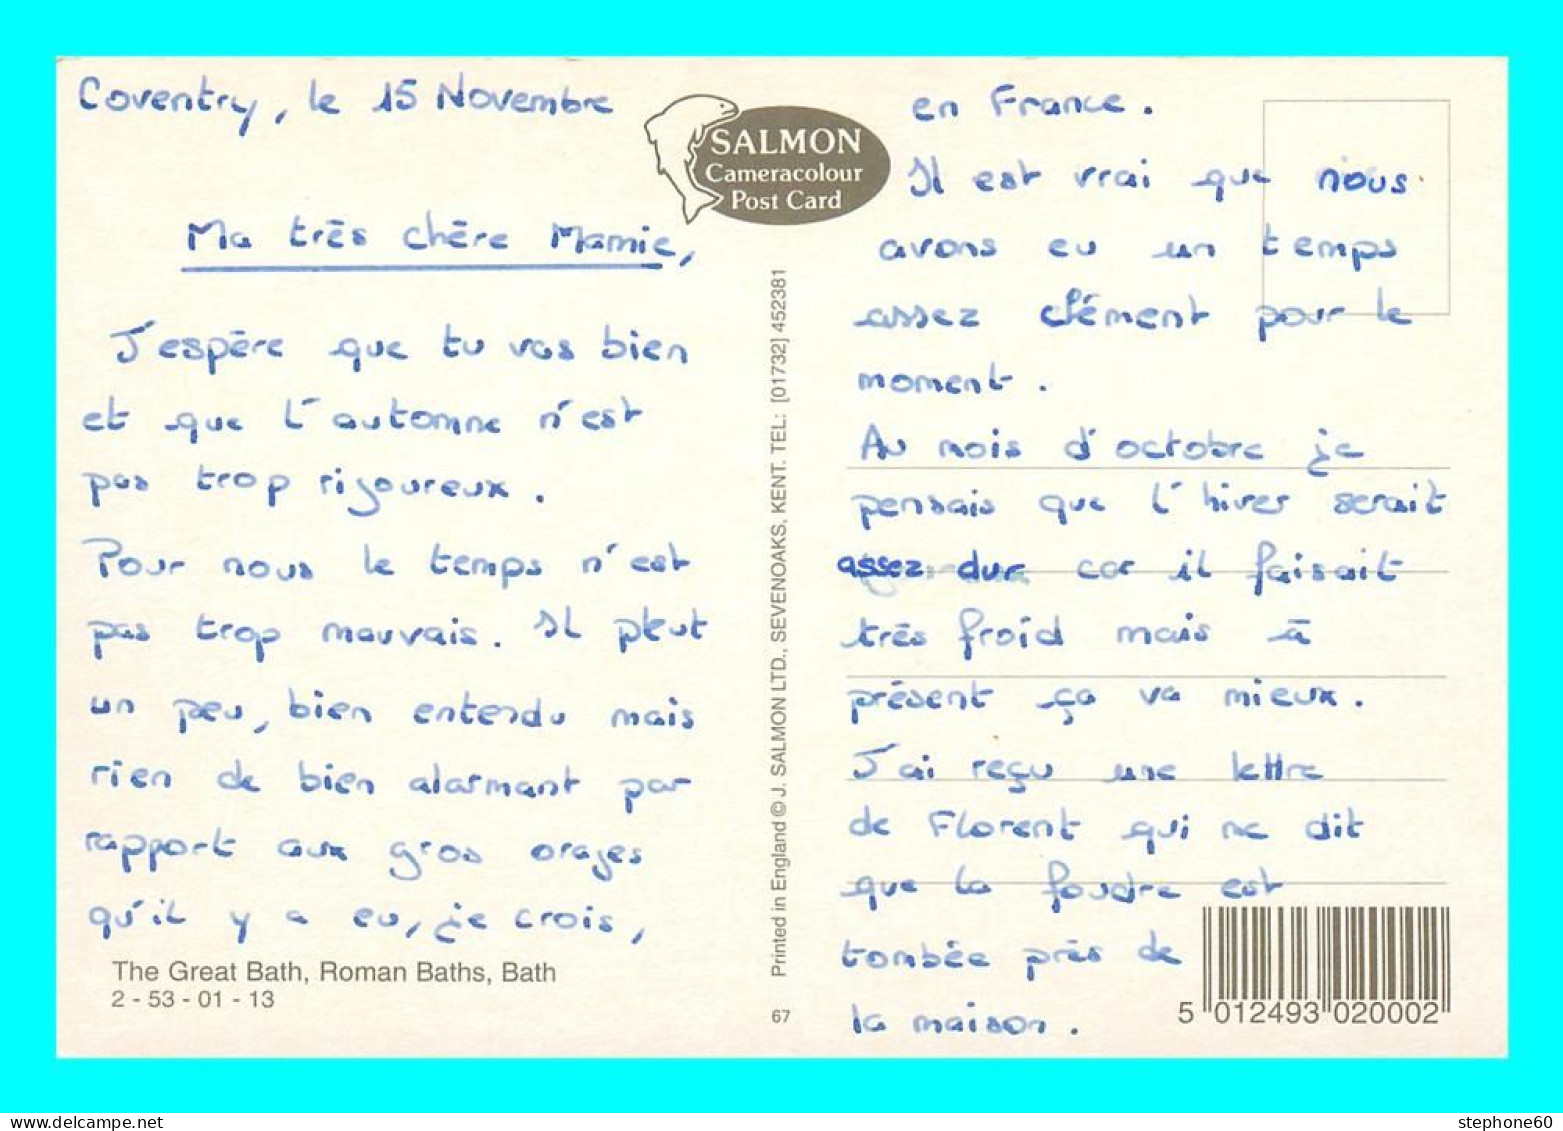 Coventry, le 15 Novembre
Ma très chère Mamie,
J'espère que tu vas bien
et que l'automne n'est
pas trop rigoureux.
Pour nous le temps n'est
pas trop mauvais. Il pleut
un peu, bien entendu mais
rien de bien alarmant par
rapport aux gros orages
qu'il y a eu, je crois,
The Great Bath, Roman Baths, Bath
2 - 53 - 01 - 13
SALMON
Cameracolour
Post Card
Printed in England © J. SALMON LTD., SEVENOAKS, KENT. TEL: [01732] 452381
67
en France.
Il est vrai que nous
avons eu un temps
assez clément pour le
moment.
Au mois d'octobre je
pensais que l'hiver serait
assez dur car il faisait
très froid mais à
présent ça va mieux.
J'ai reçu une lettre
de Florent qui me dit
que la foudre est
tombée près de
la maison.
5 012493 020002
stephone60